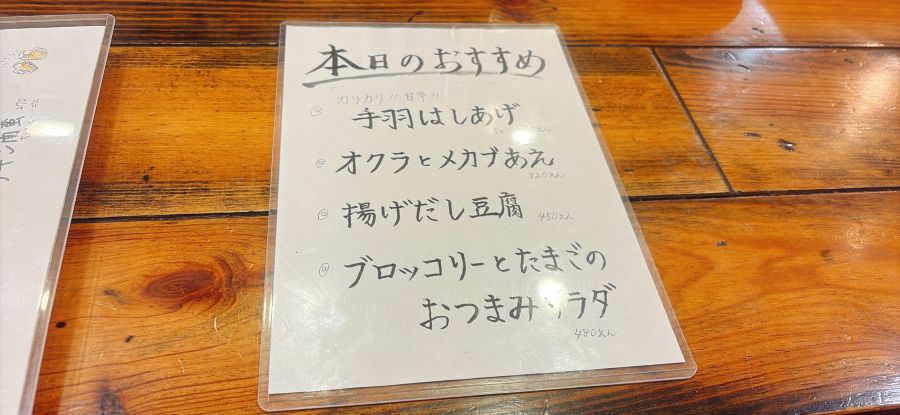 本日のおすすめ
カリカリ!! 甘辛!!
◎ 手羽はしあげ
◎ オクラとメカブあえ
320えん
◎ 揚げだし豆腐 450えん
◎ ブロッコリーとたまごの
おつまみサラダ
480えん